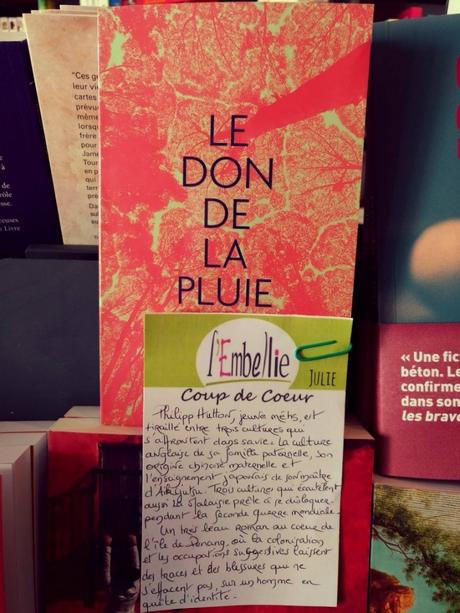 "Ces
leur vie
cartes
prévu
même
lorsq
frère
pour
Jame
Tour
en p
terr
LE
DON
DE
LA
PLUIE
l'Embellie
JULIE
Coup de Coeur
Philipp Hutton, jeune métis, est
tiraillé entre trois cultures qui
s'affrontent dans sa vie : la culture
anglaise de sa famille paternelle, son
origine chinoise maternelle et
l'enseignement japonais de son maître
d'Aikijutsu. Trois cultures qui écartèlent
aussi la Malaisie prête à se disloquer
pendant la seconde guerre mondiale.
Un très beau roman au coeur de
l'île de Penang, où la colonisation
et les occupations successives laissent
des traces et des blessures qui ne
s'effacent pas, sur un homme en
quête d'identité.
« Une fic
béton. Le
confirme
dans son
les brave